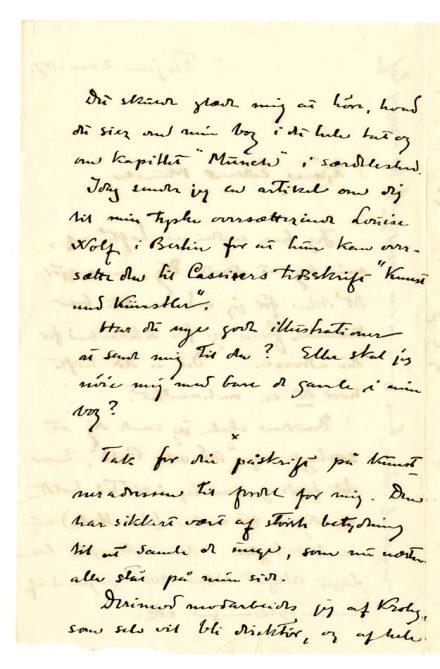 Det skulde glæde mig at höre, hvad
du sier om min bog i det hele tat og
om kapitlet "Munch" i særdleshed.
Idag sender jeg en artikel om dig
til min tyske oversætterinde Louise
Wolf i Berlin for at hun kan over-
sætte den til Cassirers tidsskrift "Kunst
und Künstler".
Har du nye gode illustrationer
at sende mig til den? Eller skal jeg
nöie mig med bare de gamle i min
bog?
x
Tak for din påskrift på Kunst
neradressen til fordel for mig. Den
har sikkert vært af störste betydning
til at samle de unge, som nu næsten
alle står på min side.
Derimod modarbeides jeg af Krohg,
som selv vil bli direktör, og af hele